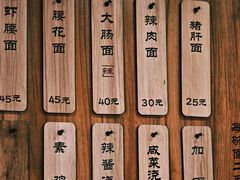 虾腰面
45元
腰花面
45元
大肠面
辣
40元
辣肉面
30元
猪肝面
25元
素鸡
辣酱
咸菜浇
加面
每碗面